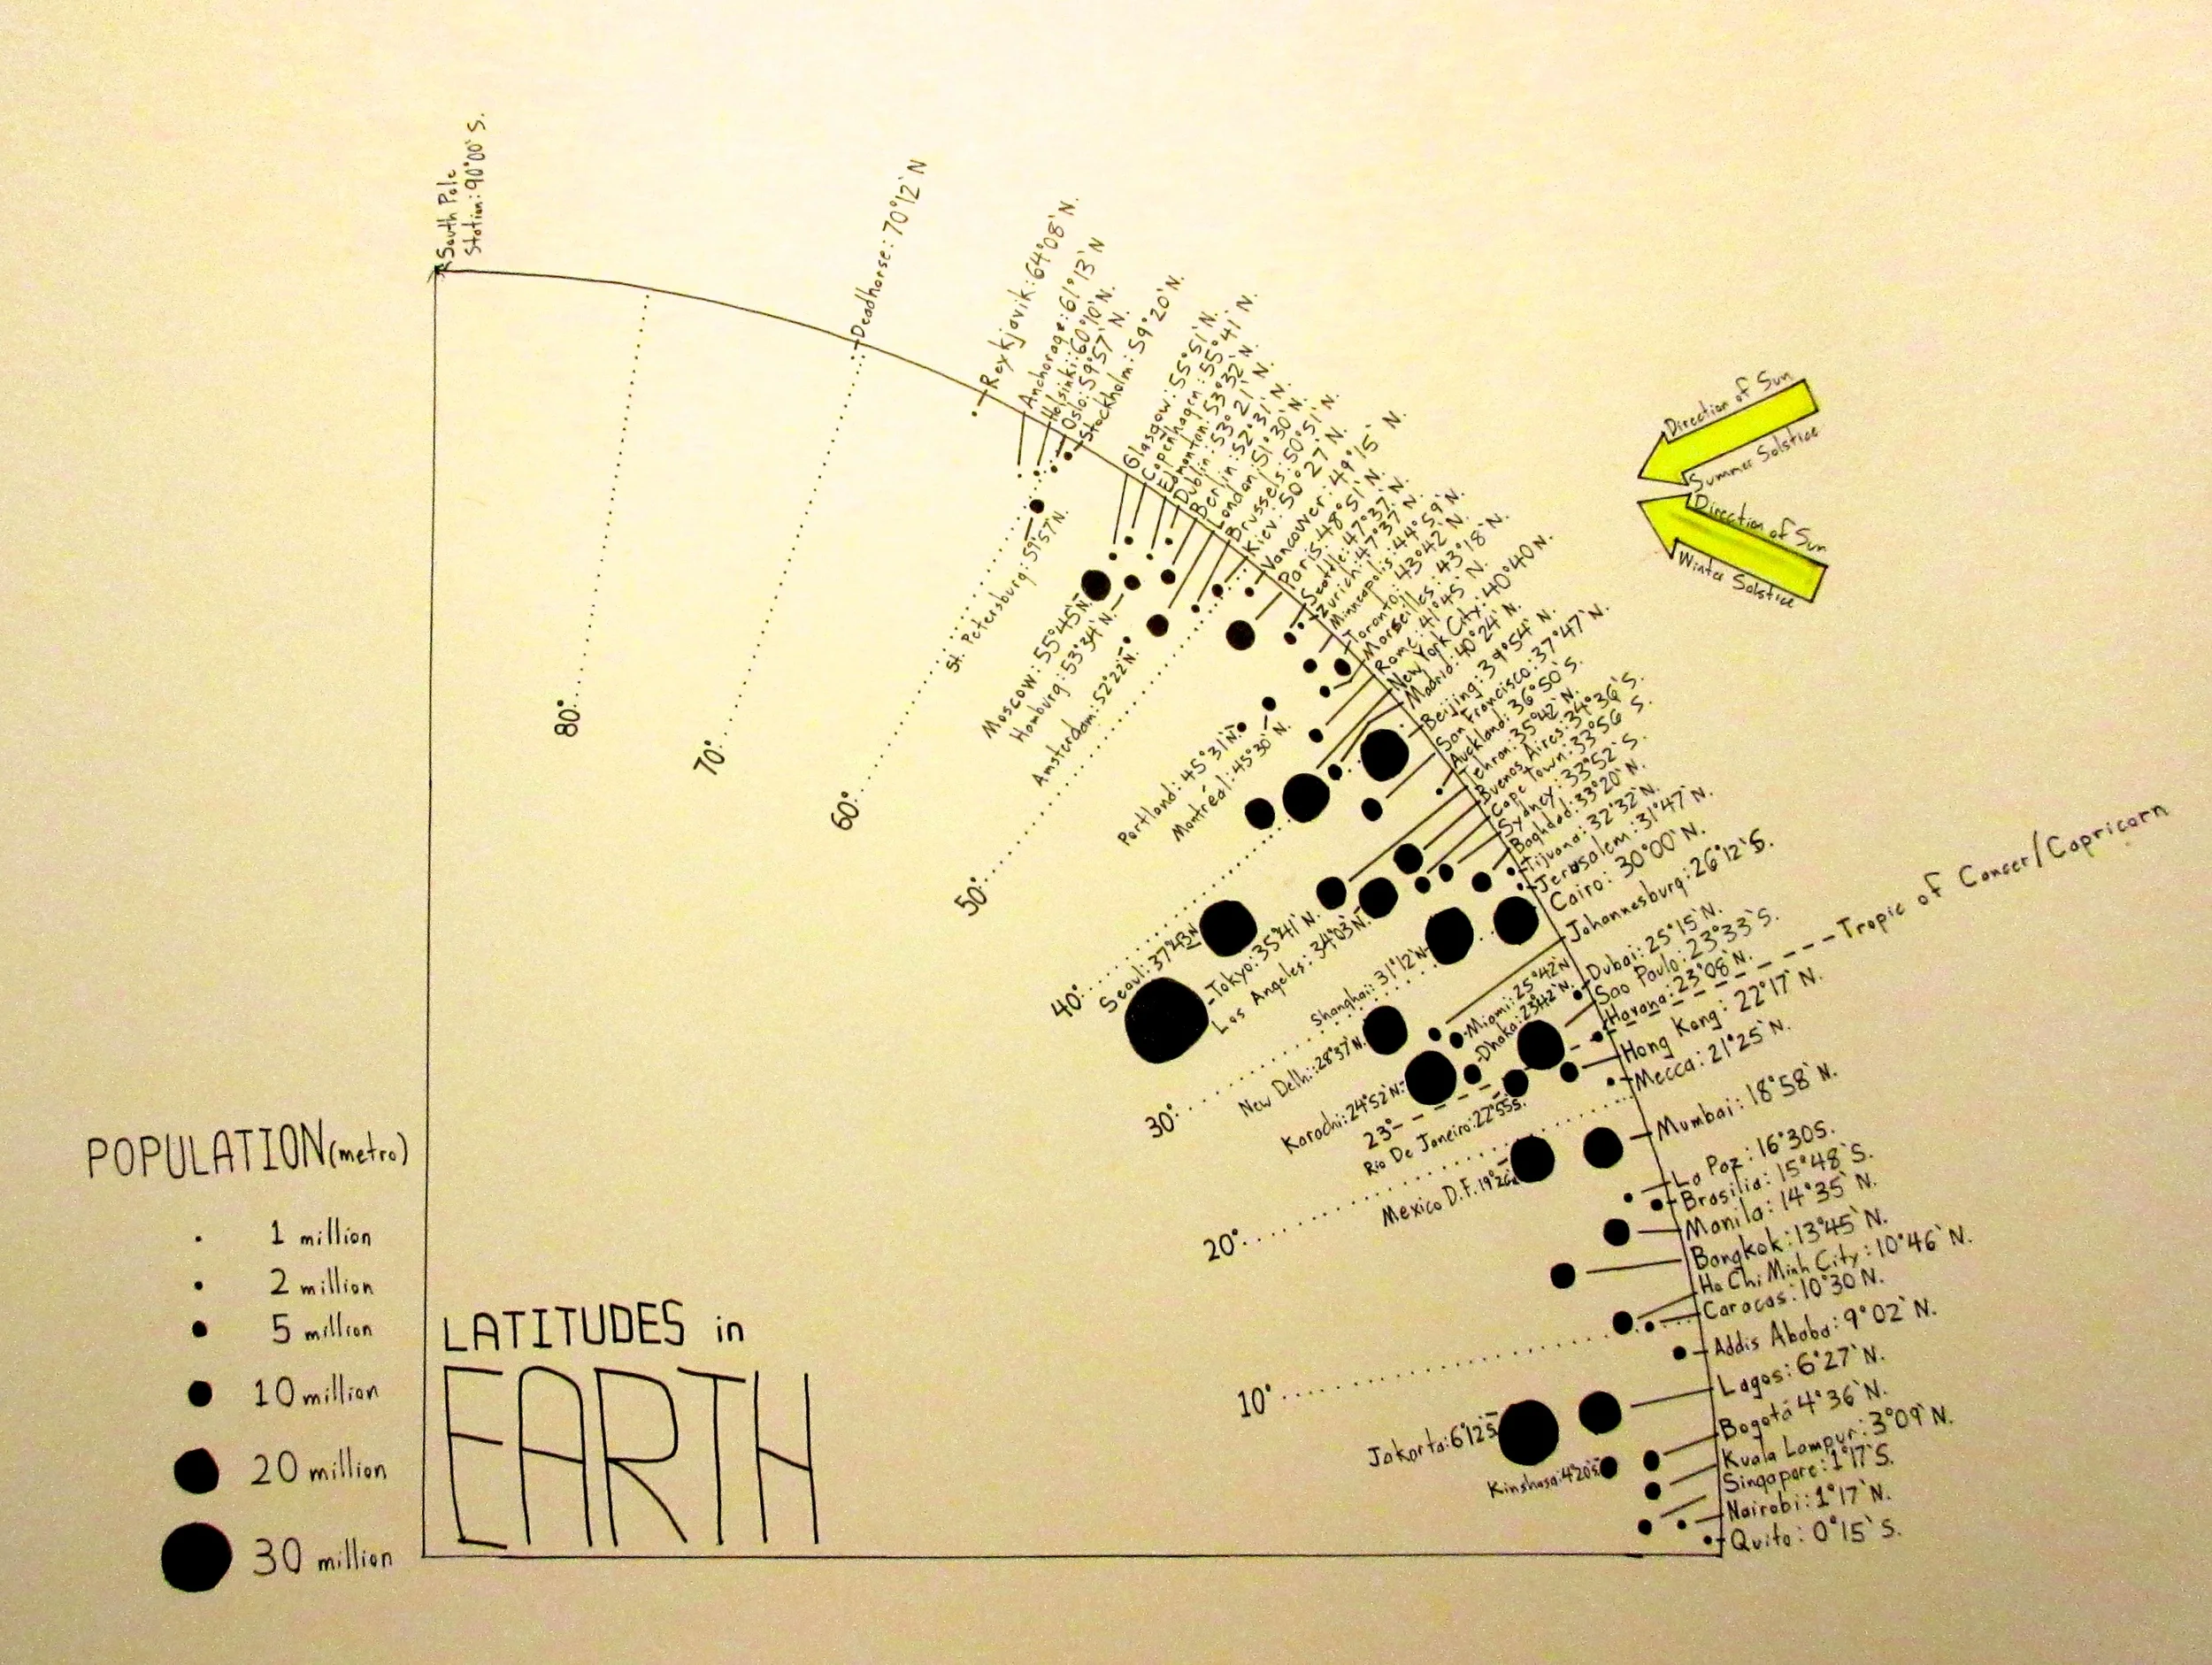 South Pole
Station: 90°00' S.
Deadhorse: 70°12' N
Reykjavik: 64°08' N.
Anchorage: 61°13' N
Helsinki: 60°10' N.
Oslo: 59°57' N.
Stockholm: 59°20' N.
St. Petersburg: 59°57' N.
Glasgow: 55°51' N.
Copenhagen: 55°41' N.
Edmonton: 53°32' N.
Dublin: 53°21' N.
Berlin: 52°31' N.
London: 51°30' N.
Brussels: 50°51' N.
Kiev: 50°27' N.
Vancouver: 49°15' N.
Paris: 48°51' N.
Seattle: 47°37' N.
Zurich: 47°37' N.
Minneapolis: 44°59' N.
Toronto: 43°42' N.
Marseilles: 43°18' N.
Rome: 41°45' N.
New York City: 40°40 N.
Madrid: 40°24' N.
Beijing: 39°54' N.
San Francisco: 37°47' N.
Auckland: 36°50' S.
Tehran: 35°42' N.
Buenos Aires: 34°36' S.
Cape Town: 33°56' S.
Sydney: 33°52' S.
Baghdad: 33°20' N.
Tijuana: 32°32' N.
Jerusalem: 31°47' N.
Cairo: 30°00' N.
Johannesburg: 26°12' S.
Dubai: 25°15' N.
Sao Paulo: 23°33' S.
Havana: 23°08' N.
Tropic of Cancer/Capricorn
Hong Kong: 22°17' N.
Mecca: 21°25' N.
Mumbai: 18°58' N.
La Paz: 16°30 S.
Brasilia: 15°48' S.
Manila: 14°35' N.
Bangkok: 13°45' N.
Ho Chi Minh City: 10°46' N.
Caracas: 10°30 N.
Addis Ababa: 9°02' N.
Lagos: 6°27' N.
Bogotá 4°36' N.
Kuala Lumpur: 3°09' N.
Singapore: 1°17' S.
Nairobi: 1°17' N.
Quito: 0°15' S.
Moscow: 55°45' N.
Hamburg: 53°34' N.
Amsterdam: 52°22' N.
Portland: 45°31' N.
Montréal: 45°30' N.
Seoul: 37°43' N
Tokyo: 35°41' N.
Los Angeles: 34°03' N.
Shanghai: 31°12' N
New Delhi: 28°37' N.
Miami: 25°42' N
Karachi: 24°52' N.
Dhaka: 23°42' N.
Rio De Janeiro: 22°55 S.
Mexico D.F. 19°26'
Jakarta: 6°12 S.
Kinshasa: 4°20 S.
80°
70°
60°
50°
40°
30°
23°
20°
10°
Direction of Sun
Summer Solstice
Direction of Sun
Winter Solstice
POPULATION (metro)
1 million
2 million
5 million
10 million
20 million
30 million
LATITUDES in
EARTH